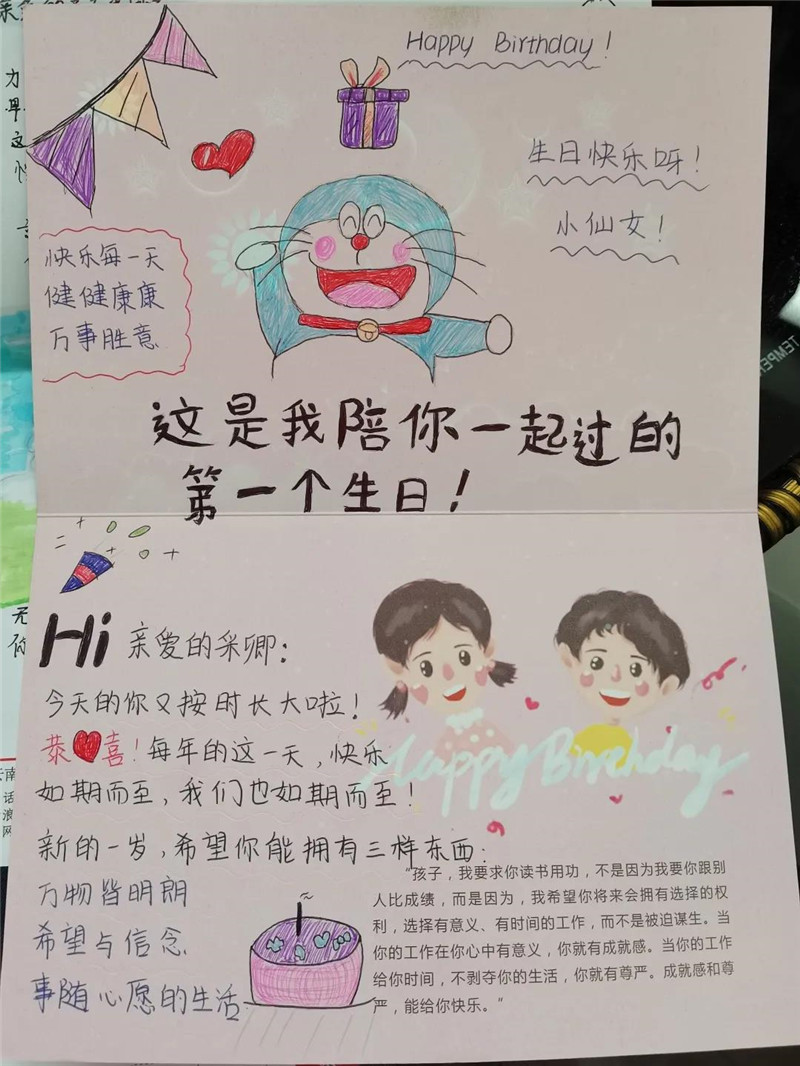 Happy Birthday!
生日快乐呀!
小仙女!
快乐每一天
健健康康
万事胜意
这是我陪你一起过的
第一个生日!
Hi 亲爱的采卿:
今天的你又按时长大啦!
恭喜!每年的这一天,快乐
如期而至,我们也如期而至!
Happy Birthday
新的一岁,希望你能拥有三样东西:
万物皆明朗
希望与信念
事随心愿的生活
“孩子,我要求你读书用功,不是因为我要你跟别
人比成绩,而是因为,我希望你将来会拥有选择的权
利,选择有意义、有时间的工作,而不是被迫谋生。当
你的工作在你心中有意义,你就有成就感。当你的工作
给你时间,不剥夺你的生活,你就有尊严。成就感和尊
严,能给你快乐。”
TEMPER
力
这
无
你
云南
话
浪
网